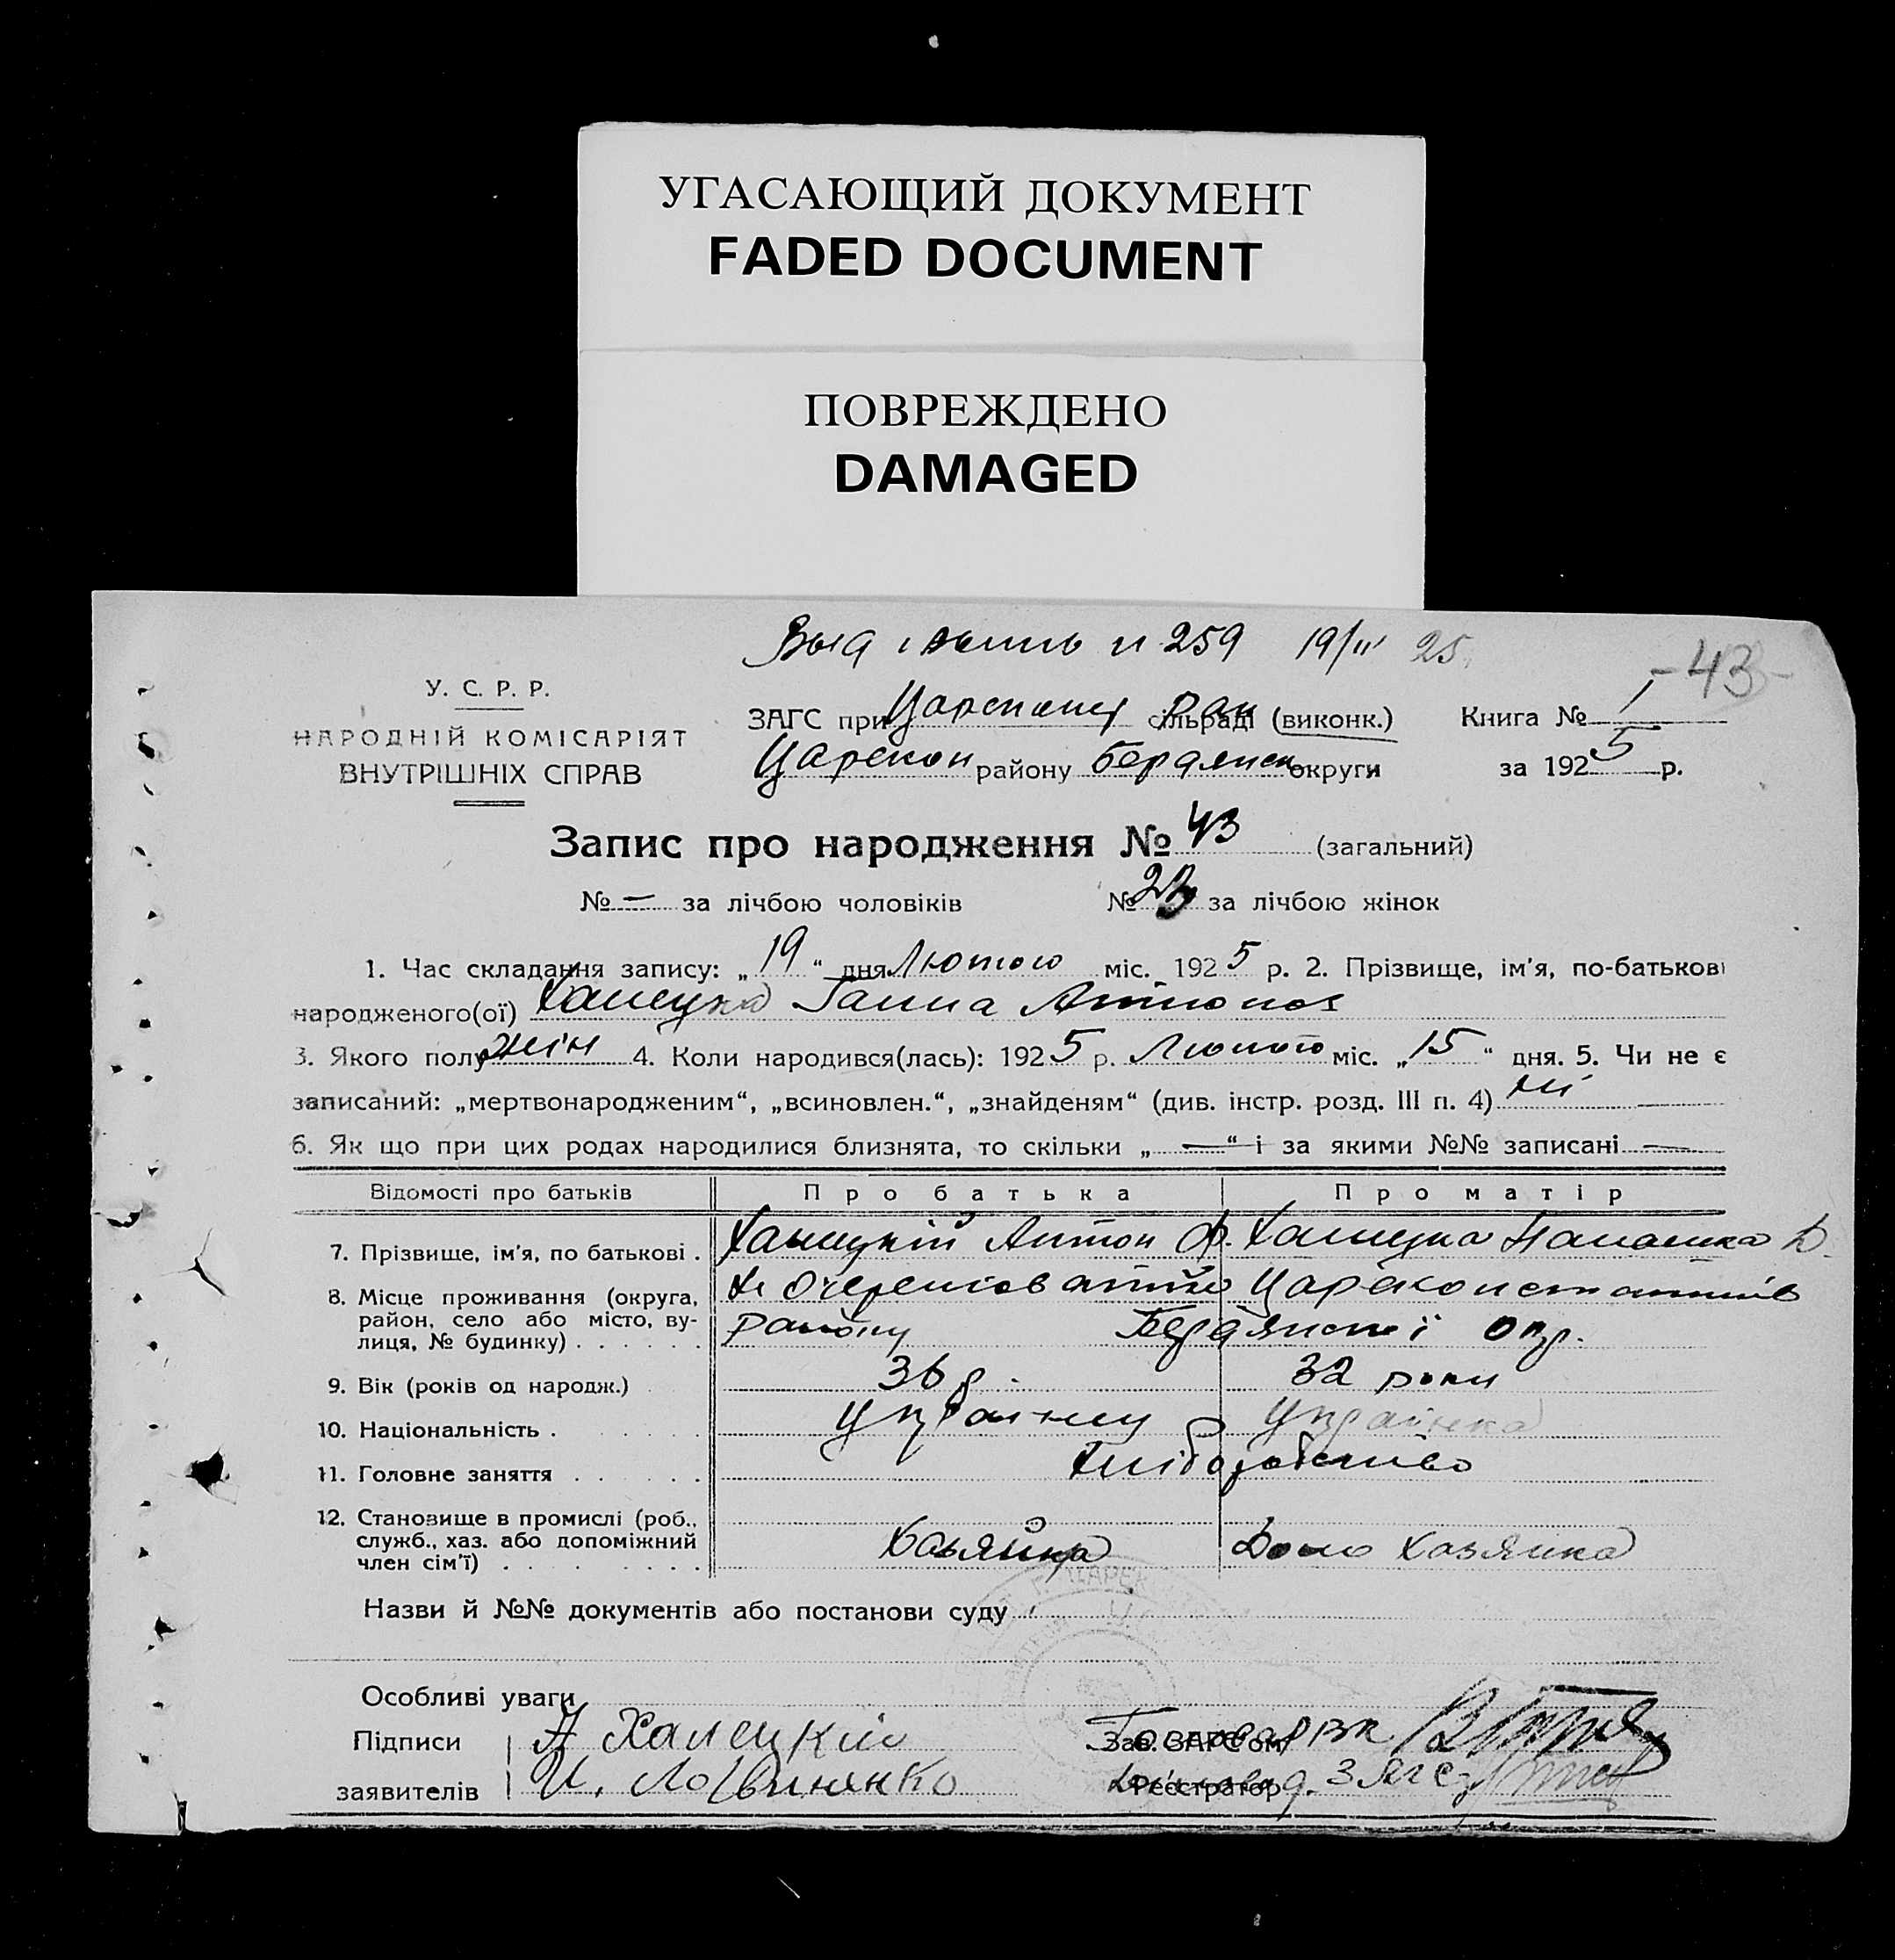 УГАСАЮЩИЙ ДОКУМЕНТ
FADED DOCUMENT
ПОВРЕЖДЕНО
DAMAGED
259 19/II 25
-43-
У. С. Р. Р.
НАРОДНІЙ КОМІСАРІЯТ
ВНУТРІШНІХ СПРАВ
ЗАГС при сільраді (виконк.) Книга № 1
Царекон району Бердянськ округи за 1925 р.
Запис про народження № 43 (загальний)
№ — за лічбою чоловіків № 23 за лічбою жінок
1. Час складання запису: „19“ дня Лютого міс. 1925 р. 2. Прізвище, ім'я, по-батькові
народженого(ої) Халецка Ганна Антонов
3. Якого полу жін 4. Коли народився(лась): 1925 р. Лютого міс. „15“ дня. 5. Чи не є
записаний: „мертвонародженим“, „всиновлен.“, „знайденям“ (див. інстр. розд. III п. 4) ні
6. Як що при цих родах народилися близнята, то скільки „—“ і за якими №№ записані —
Відомості про батьків Про батька Про матір
7. Прізвище, ім'я, по батькові . Халецкій Антон Ф. Халецка
8. Місце проживання (округа, Цареконстантинів
район, село або місто, ву- району Бердянської окр.
лиця, № будинку) . . . . . .
9. Вік (років од народж.) 36 р. 32 роки
10. Національність . Українец Українка
11. Головне заняття . . . . . Хліборобство
12. Становище в промислі (роб.,
служб., хаз. або допоміжний Хазяйка Домо Хазяйка
член сім'ї) . . . . . . .
Назви й №№ документів або постанови суду
Особливі уваги
Підписи А Халецкій Зав. ЗАГС'ом
заявителів И. Логвиненко Реєстратор